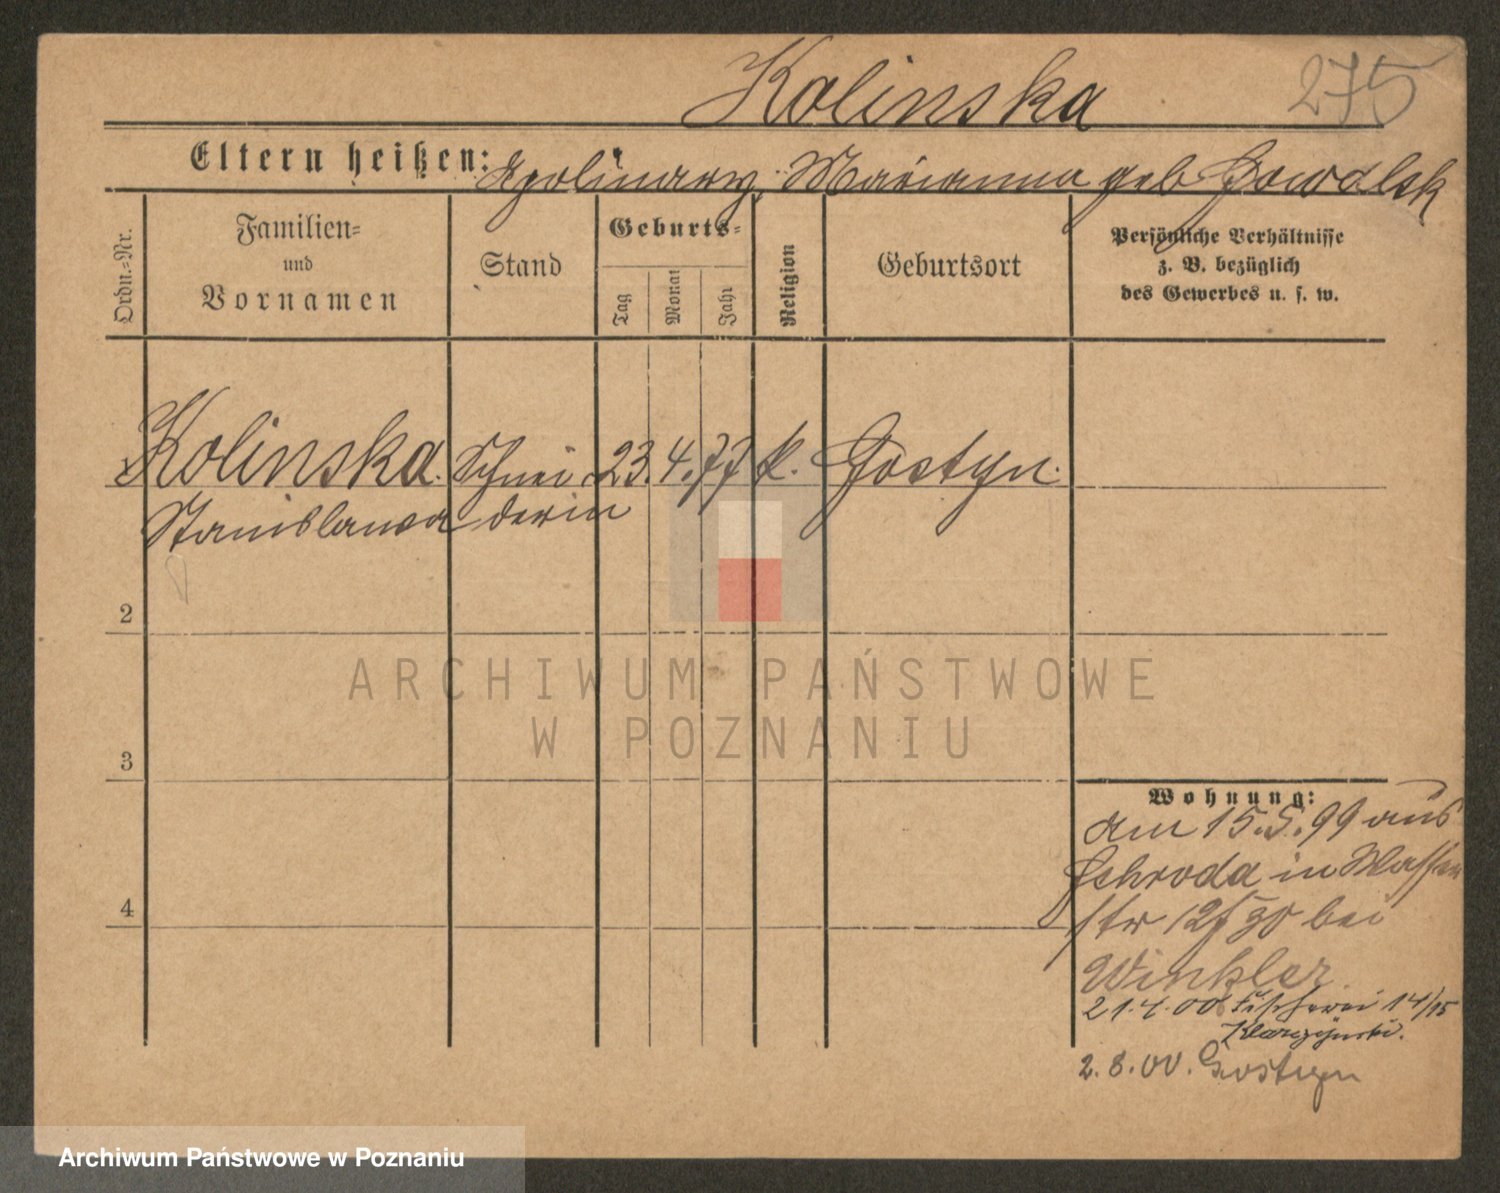 Kolinska 275
Eltern heißen: Apolinary, Marianna geb Kowalsk
Ordn.-Nr.
Familien-
und
Vornamen
Stand
Geburts-
Tag
Monat
Jahr
Religion
Geburtsort
Persönliche Verhältnisse
z. B. bezüglich
des Gewerbes u. s. w.
1 Kolinska. Schnei 23. 4. 77 k. Gostyn.
Stanislawa derin
2
ARCHIWUM PAŃSTWOWE
W POZNANIU
3
Wohnung:
am 15.5.99 aus
Schroda in Wasser
str bei
4
Winkler
21.4.00 Fischerei 14/15
2.8.00. Gostyn
Archiwum Państwowe w Poznaniu